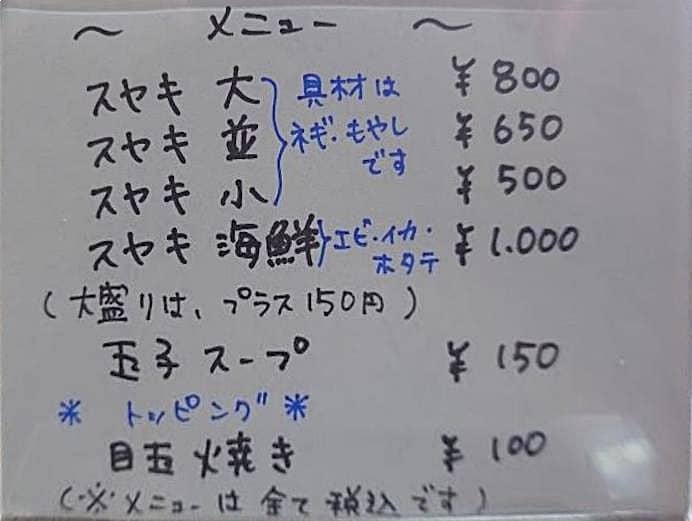 ～ メニュー ～
スヤキ 大 具材は ¥800
スヤキ 並 ネギ・もやし ¥650
です
スヤキ 小 ¥500
スヤキ 海鮮 エビ・イカ・ ¥1.000
ホタテ
(大盛りは、プラス150円)
玉子スープ ¥150
* トッピング *
目玉焼き ¥100
(※メニューは全て税込です)